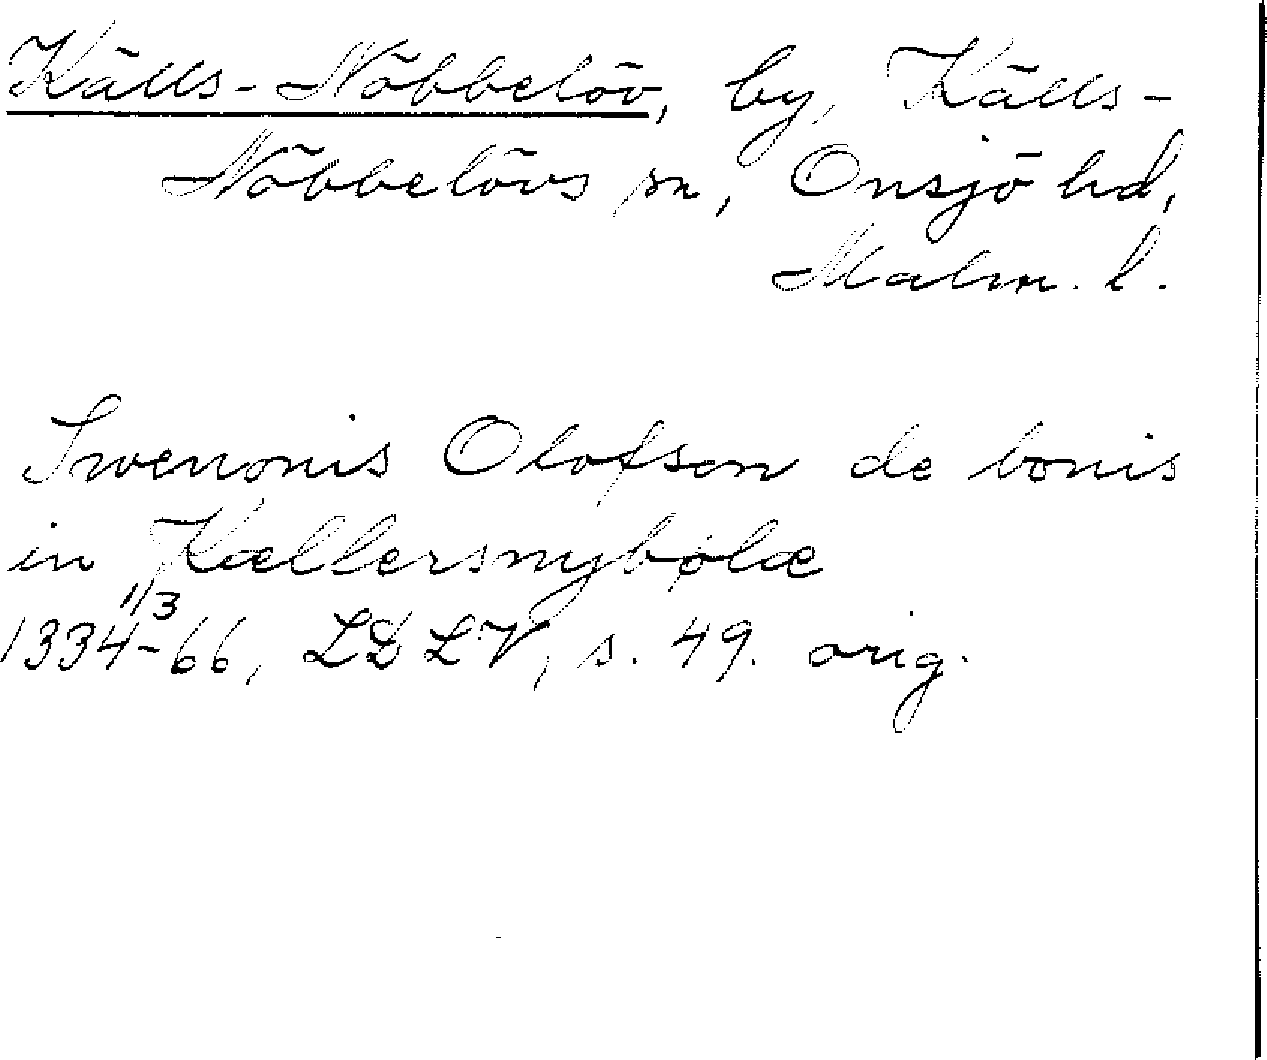 Källs-Nöbbelöv, by, Källs-
Nöbbelövs sn, Onsjö hd,
Malm. l.
Swenonis Olofson de bonis
in Kællersnybølæ
1/3
1334-66, LDLV, s. 49. orig.